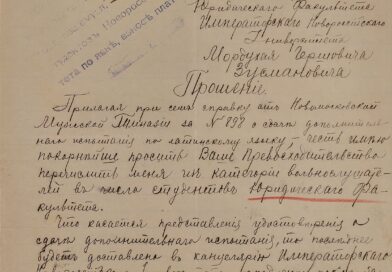 Юридическаго Факультета
Императорскаго Новороссійскаго
Университета
Мордухая Гершовича
Зусмановича
Прошеніе
Прилагая при семъ справку отъ Новомосковской
Мужской Гимназіи за № 898 о сдачѣ дополнитель
наго испытанія по латинскому языку, честь имѣю
покорнѣйше просить Ваше Превосходительство
перечислить меня изъ категоріи вольнослушате
лей въ число студентовъ Юридическаго Фа-
культета.
Что касается представленія удостовѣренія о
сдачѣ дополнительнаго испытанія, то послѣднее
будетъ доставлено въ канцелярію Императорскаго